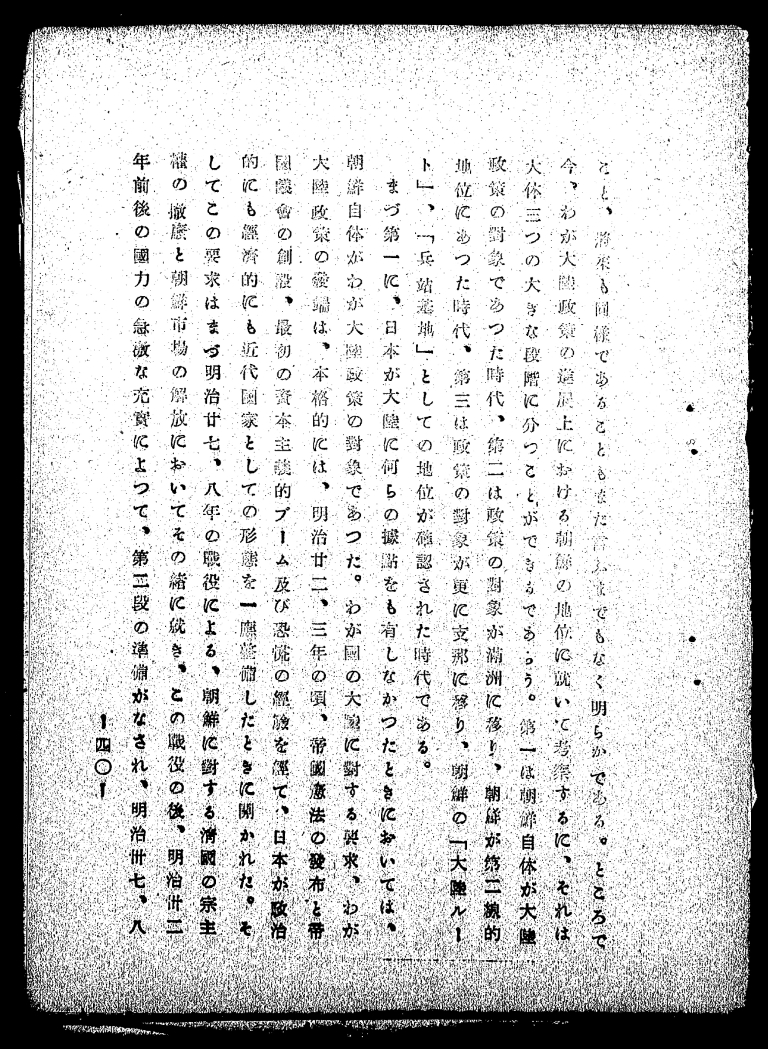 こと、將來も同樣であることもまた言ふまでもなく明らかである。ところで
今、わが大陸政策の進展上における朝鮮の地位に就いて考察するに、それは
大体三つの大きな段階に分つことができるであらう。第一は朝鮮自体が大陸
政策の對象であつた時代、第二は政策の對象が滿洲に移り、朝鮮が第二線的
地位にあつた時代、第三は政策の對象が更に支那に移り、朝鮮の「大陸ルー
ト」、「兵站基地」としての地位が確認された時代である。
まづ第一に、日本が大陸に何らの據點をも有しなかつたときにおいては、
朝鮮自体がわが大陸政策の對象であつた。わが國の大陸に對する要求、わが
大陸政策の發端は、本格的には、明治廿二、三年の頃、帝國憲法の發布と帝
國議會の創設、最初の資本主義的ブーム及び恐慌の經驗を經て、日本が政治
的にも經濟的にも近代國家としての形態を一應整備したときに開かれた。そ
してこの要求はまづ明治廿七、八年の戰役による、朝鮮に對する淸國の宗主
權の撤廢と朝鮮市場の解放においてその緖に就き、この戰役の後、明治卅三
年前後の國力の急激な充實によつて、第二段の準備がなされ、明治卅七、八
ー四〇ー